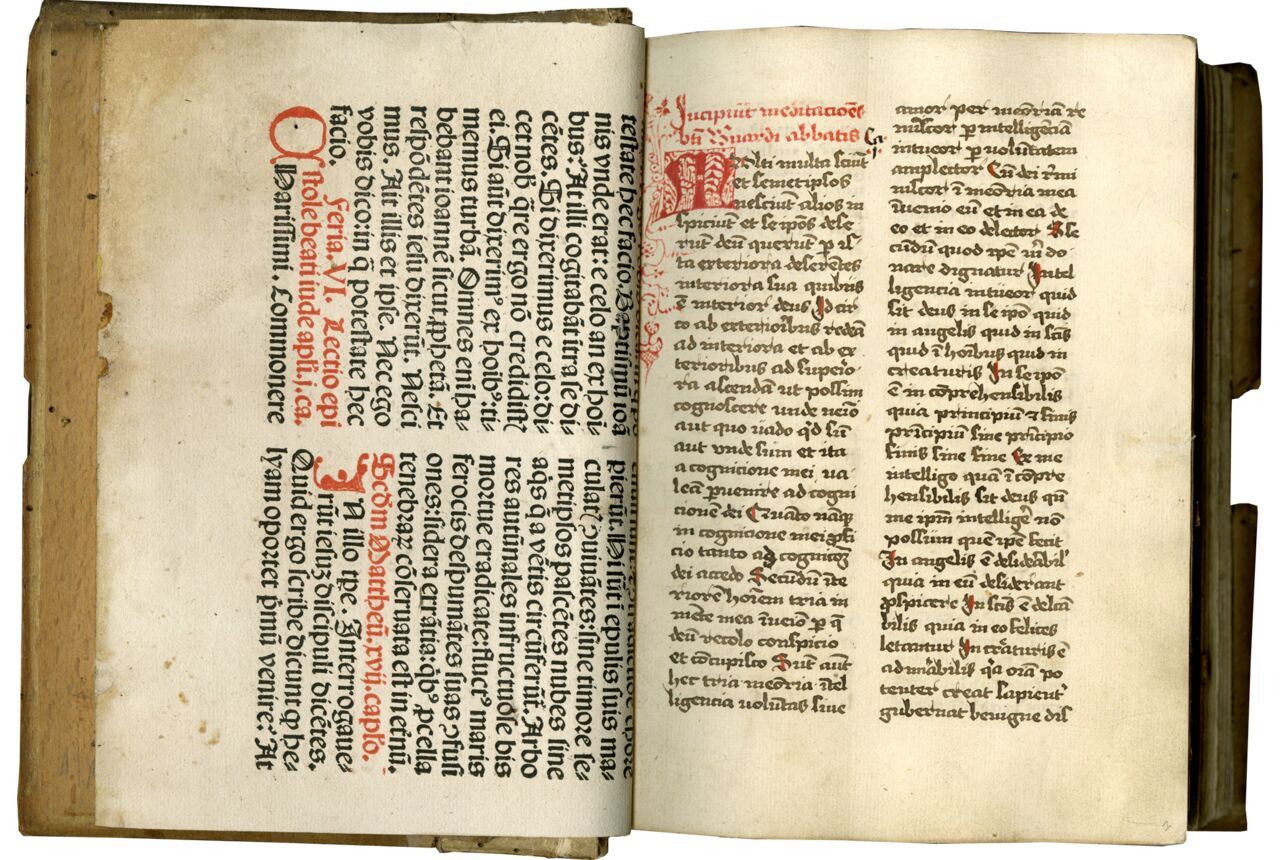 testate hec facio. Baptismū ioā
nis vnde erat: e celo an ex hoi-
bus: At illi cogitabāt ītra se di-
cētes. Si dixerimus e celo: di-
cet nob̄ q̄re ergo nō credidist͛
ei. Si aūt dixerim⁹ ex hoib⁹: ti-
memus turbā. Omnes enī ha-
bebant ioannē sicut ꝓphetā. Et
respōdētes iesu dixerūt. Nesci
mus. Ait illis et ipse. Nec ego
vobis dico: in q̄ potestate hec
facio. Feria. VI. Lectio epi
stole beati iude apl̄i. j. ca.
CHarissimi. Commonere
pierūt. Hi sūt i epulis suis ma-
culat͛ ꝯuiuātes: sine timore se-
metipsos pascētes nubes sine
aq̄s q̄ a vētis circūferūt͛. Arbo
res autūnales infructuose bis
mortue eradicate: fluct⁹ maris
ferocis despumātes suas ꝯfusi
ones: sidera errātia: qb⁹ ꝓcella
tenebraꝝ cōseruata est in etnū.
Scd̄m Mattheū. xvij. capl̄o.
IN illo tp̄e. Interrogaue-
rūt iesuꝫ discipuli dicētes.
Quid ergo scribe dicunt qꝫ he-
lyam oportet p̄mū venire: At
Incipiūt meditacōēs
bt̄i B̄nardi abbatis Ca. I.
Multi multa sciūt
et semetipsos
nesciūt alios in
spiciūt et se ip̄os dese
rūt deū querūt ꝑ is͛
ta exteriora deserētes
interiora sua quibus
ē interior deus Id cir
co ab exterioribus redeā
ad interiora et ab ex
terioribus ad superio
ra ascendā ut possim
cognoscere unde venio
aut quo vado qd sū
aut vnde sum et ita
a cognicione mei va
leā ꝑuenire ad cogni
cionē dei Quāto nāqꝫ
in cognicione mei ꝓfi
cio tanto ad cognicōꝫ
dei accedo Secūdū īte
riorē hoīem tria in
mēte mea īuenio ꝑ q̄
deū recolo conspicio
et cōcupisco Sūt aūt
hec tria meōria ītel
ligencia volūtas sive
amor per meōriā re
niscor ꝑ intelligēciā
intueor ꝑ volūtatem
amplector Cū dei r̄mi
niscor ī meōria mea
īuenio eū et in ea de
eo et in eo delector Se
cūdū quod ip̄e m̄ do
nare dignatur Intel
ligencia intueor quid
sit deus in se ip̄o quid
in angelis quid in scīs
quid ī hoībus quid in
creaturis In se ip̄o
ē incōprehensibilis
quia principiū ⁊ finis
prīcipiū sine prīcipio
finis sine fine Ex me
intelligo quā īcōpre
hensibilis sit deus qm̄
me ip̄m intelligē nō
possum quē ip̄e fecit
In angelis ē desiderābil͛
quia in eū desiderant
ꝓspicere In scīs ē delcā
bilis quia in eo felices
letantur In cr̄aturis ē
admīabilis qꝛ oīa po
tenter creat sapient͛
gubernat benigne dis